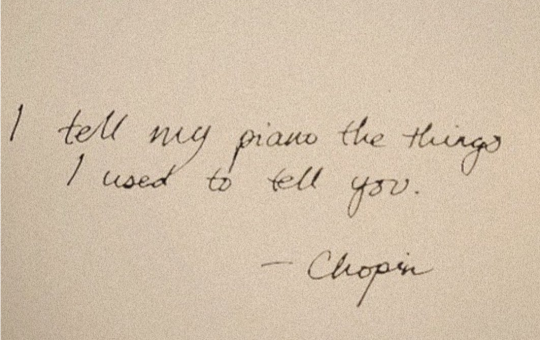 I tell my piano the things
I used to tell you.
— Chopin